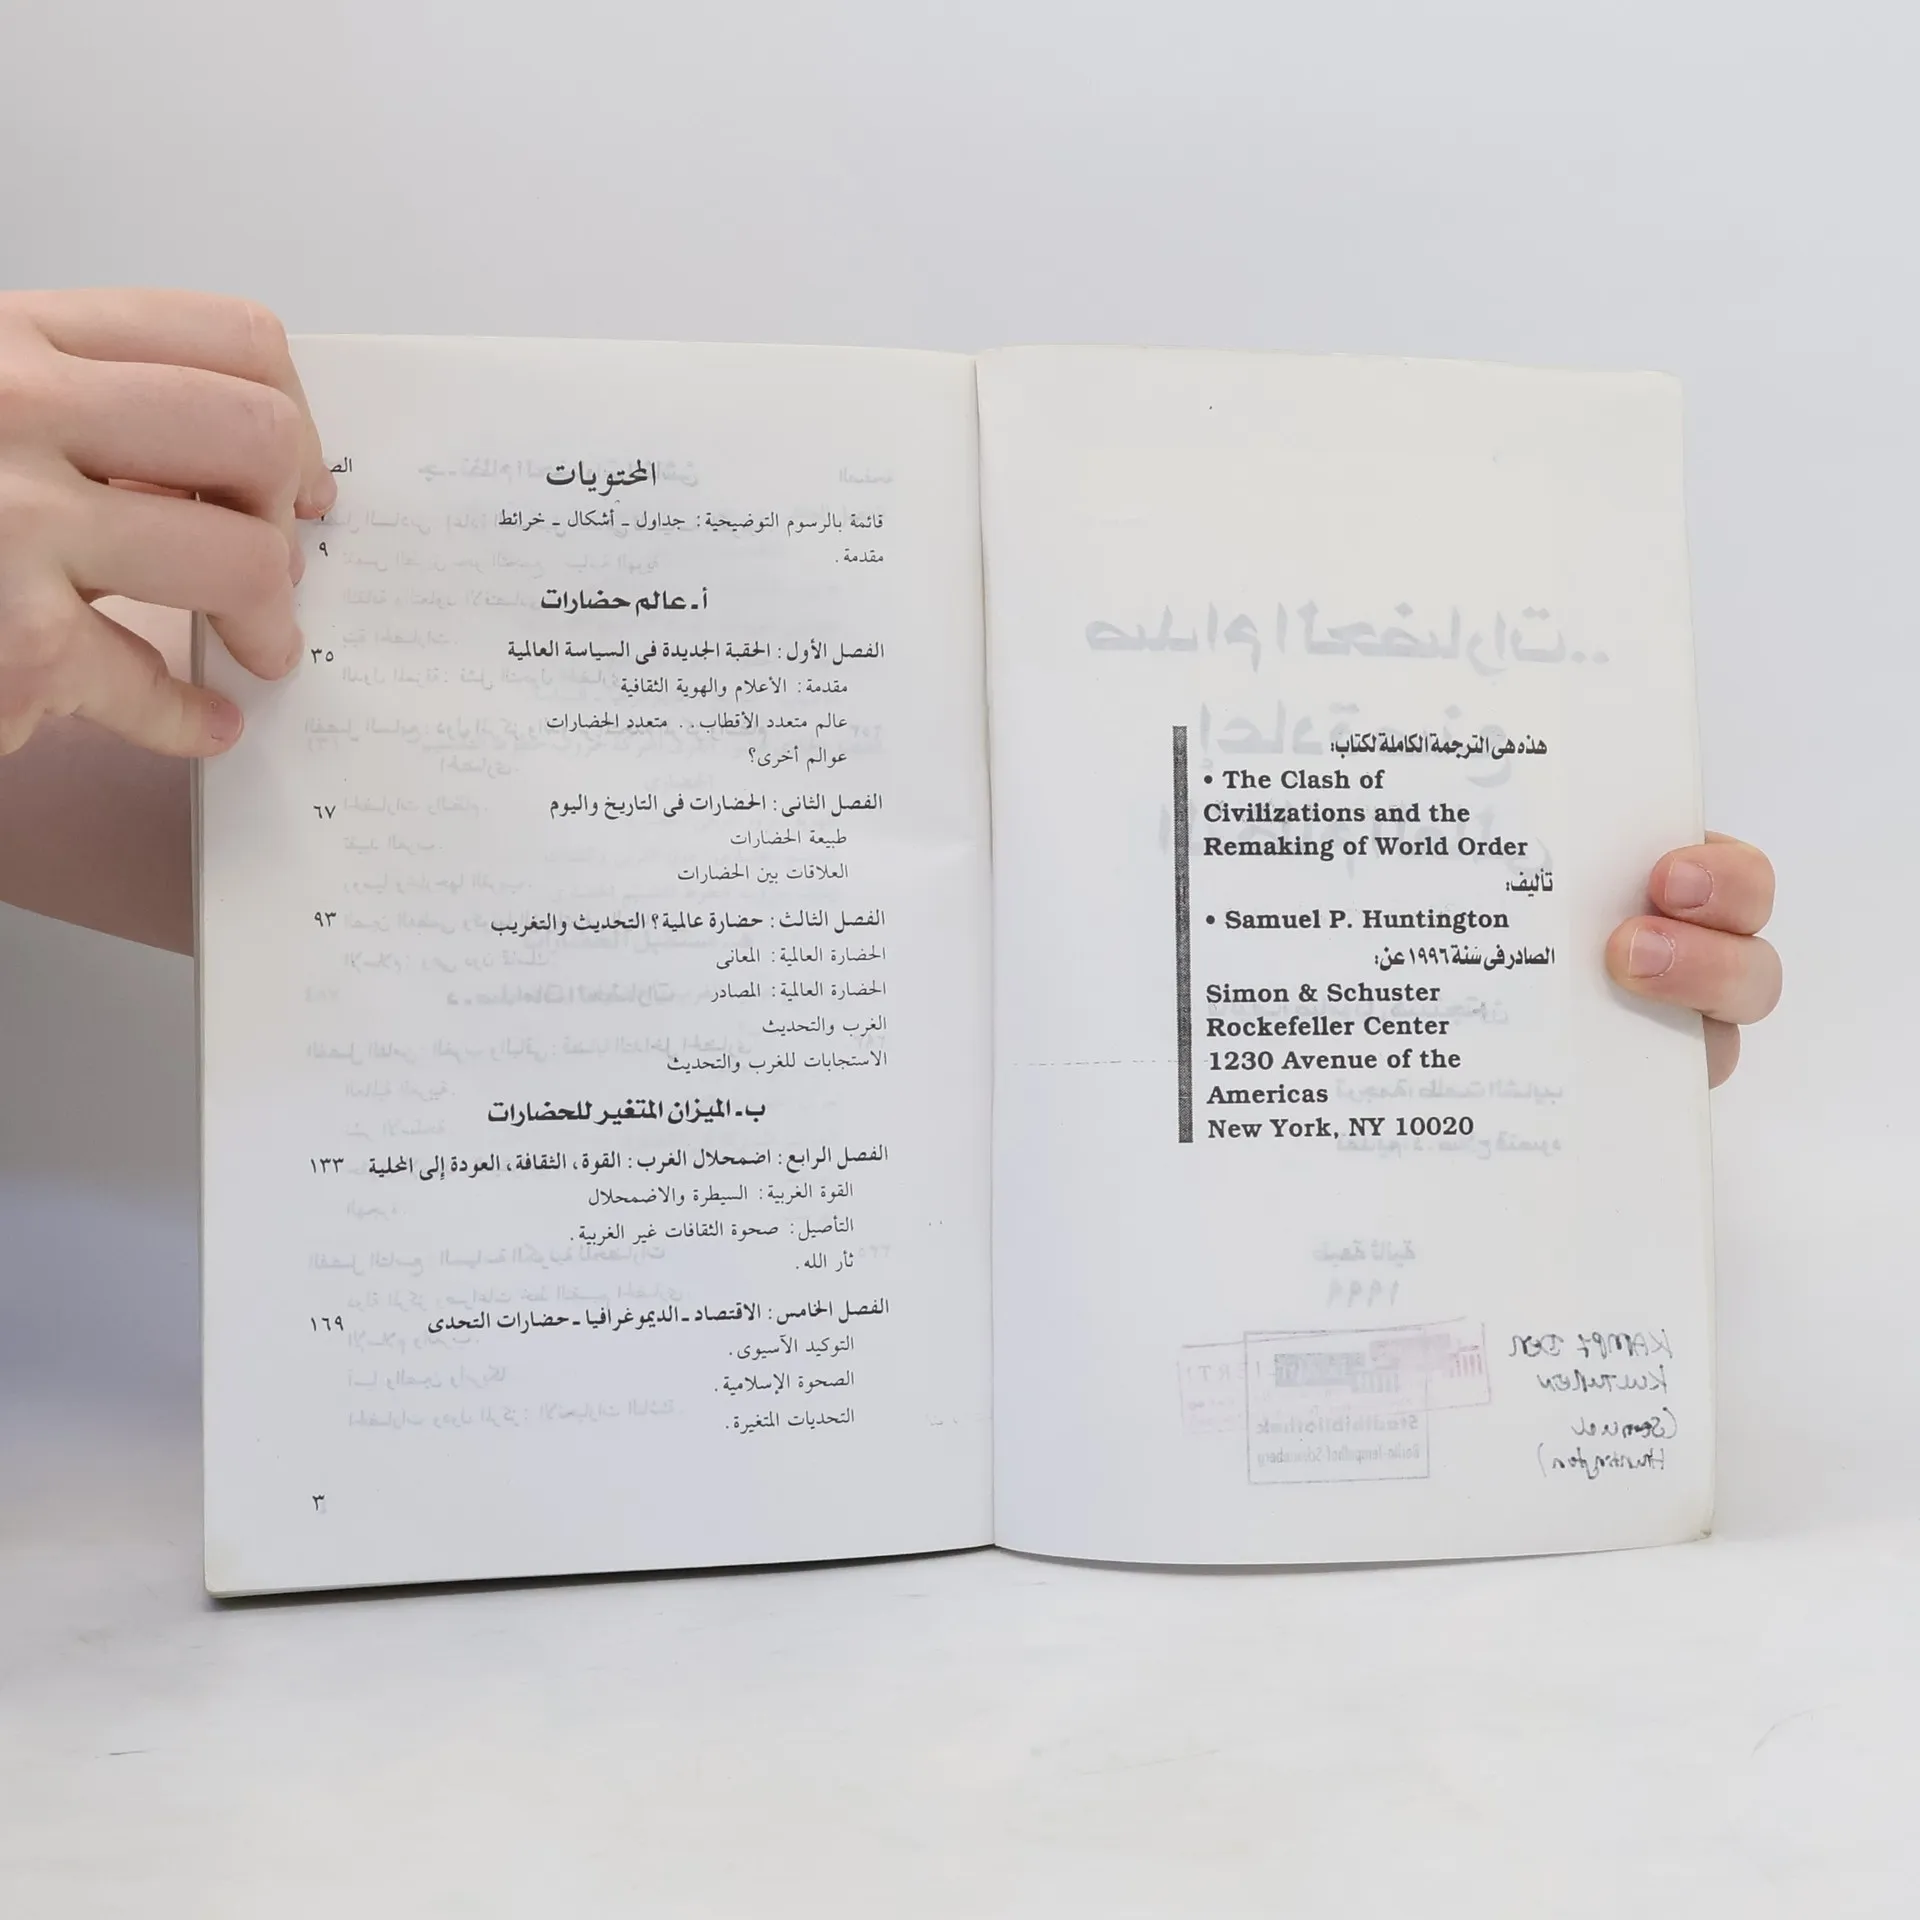 هذه هى الترجمة الكاملة لكتاب:
• The Clash of
Civilizations and the
Remaking of World Order
تأليف:
• Samuel P. Huntington
الصادر فى سنة ١٩٩٦ عن:
Simon & Schuster
Rockefeller Center
1230 Avenue of the
Americas
New York, NY 10020
المحتويات
قائمة بالرسوم التوضيحية: جداول ـ أشكال ـ خرائط
مقدمة. ٩
أ ـ عالم حضارات
الفصل الأول: الحقبة الجديدة فى السياسة العالمية ٣٥
مقدمة: الأعلام والهوية الثقافية
عالم متعدد الأقطاب.. متعدد الحضارات
عوالم أخرى؟
الفصل الثانى: الحضارات فى التاريخ واليوم ٦٧
طبيعة الحضارات
العلاقات بين الحضارات
الفصل الثالث: حضارة عالمية؟ التحديث والتغريب ٩٣
الحضارة العالمية: المعانى
الحضارة العالمية: المصادر
الغرب والتحديث
الاستجابات للغرب والتحديث
ب ـ الميزان المتغير للحضارات
الفصل الرابع: اضمحلال الغرب: القوة، الثقافة، العودة إلى المحلية ١٣٣
القوة الغربية: السيطرة والاضمحلال
التأصيل: صحوة الثقافات غير الغربية.
ثأر الله.
الفصل الخامس: الاقتصاد ـ الديموغرافيا ـ حضارات التحدى ١٦٩
التوكيد الآسيوى.
الصحوة الإسلامية.
التحديات المتغيرة.
٣